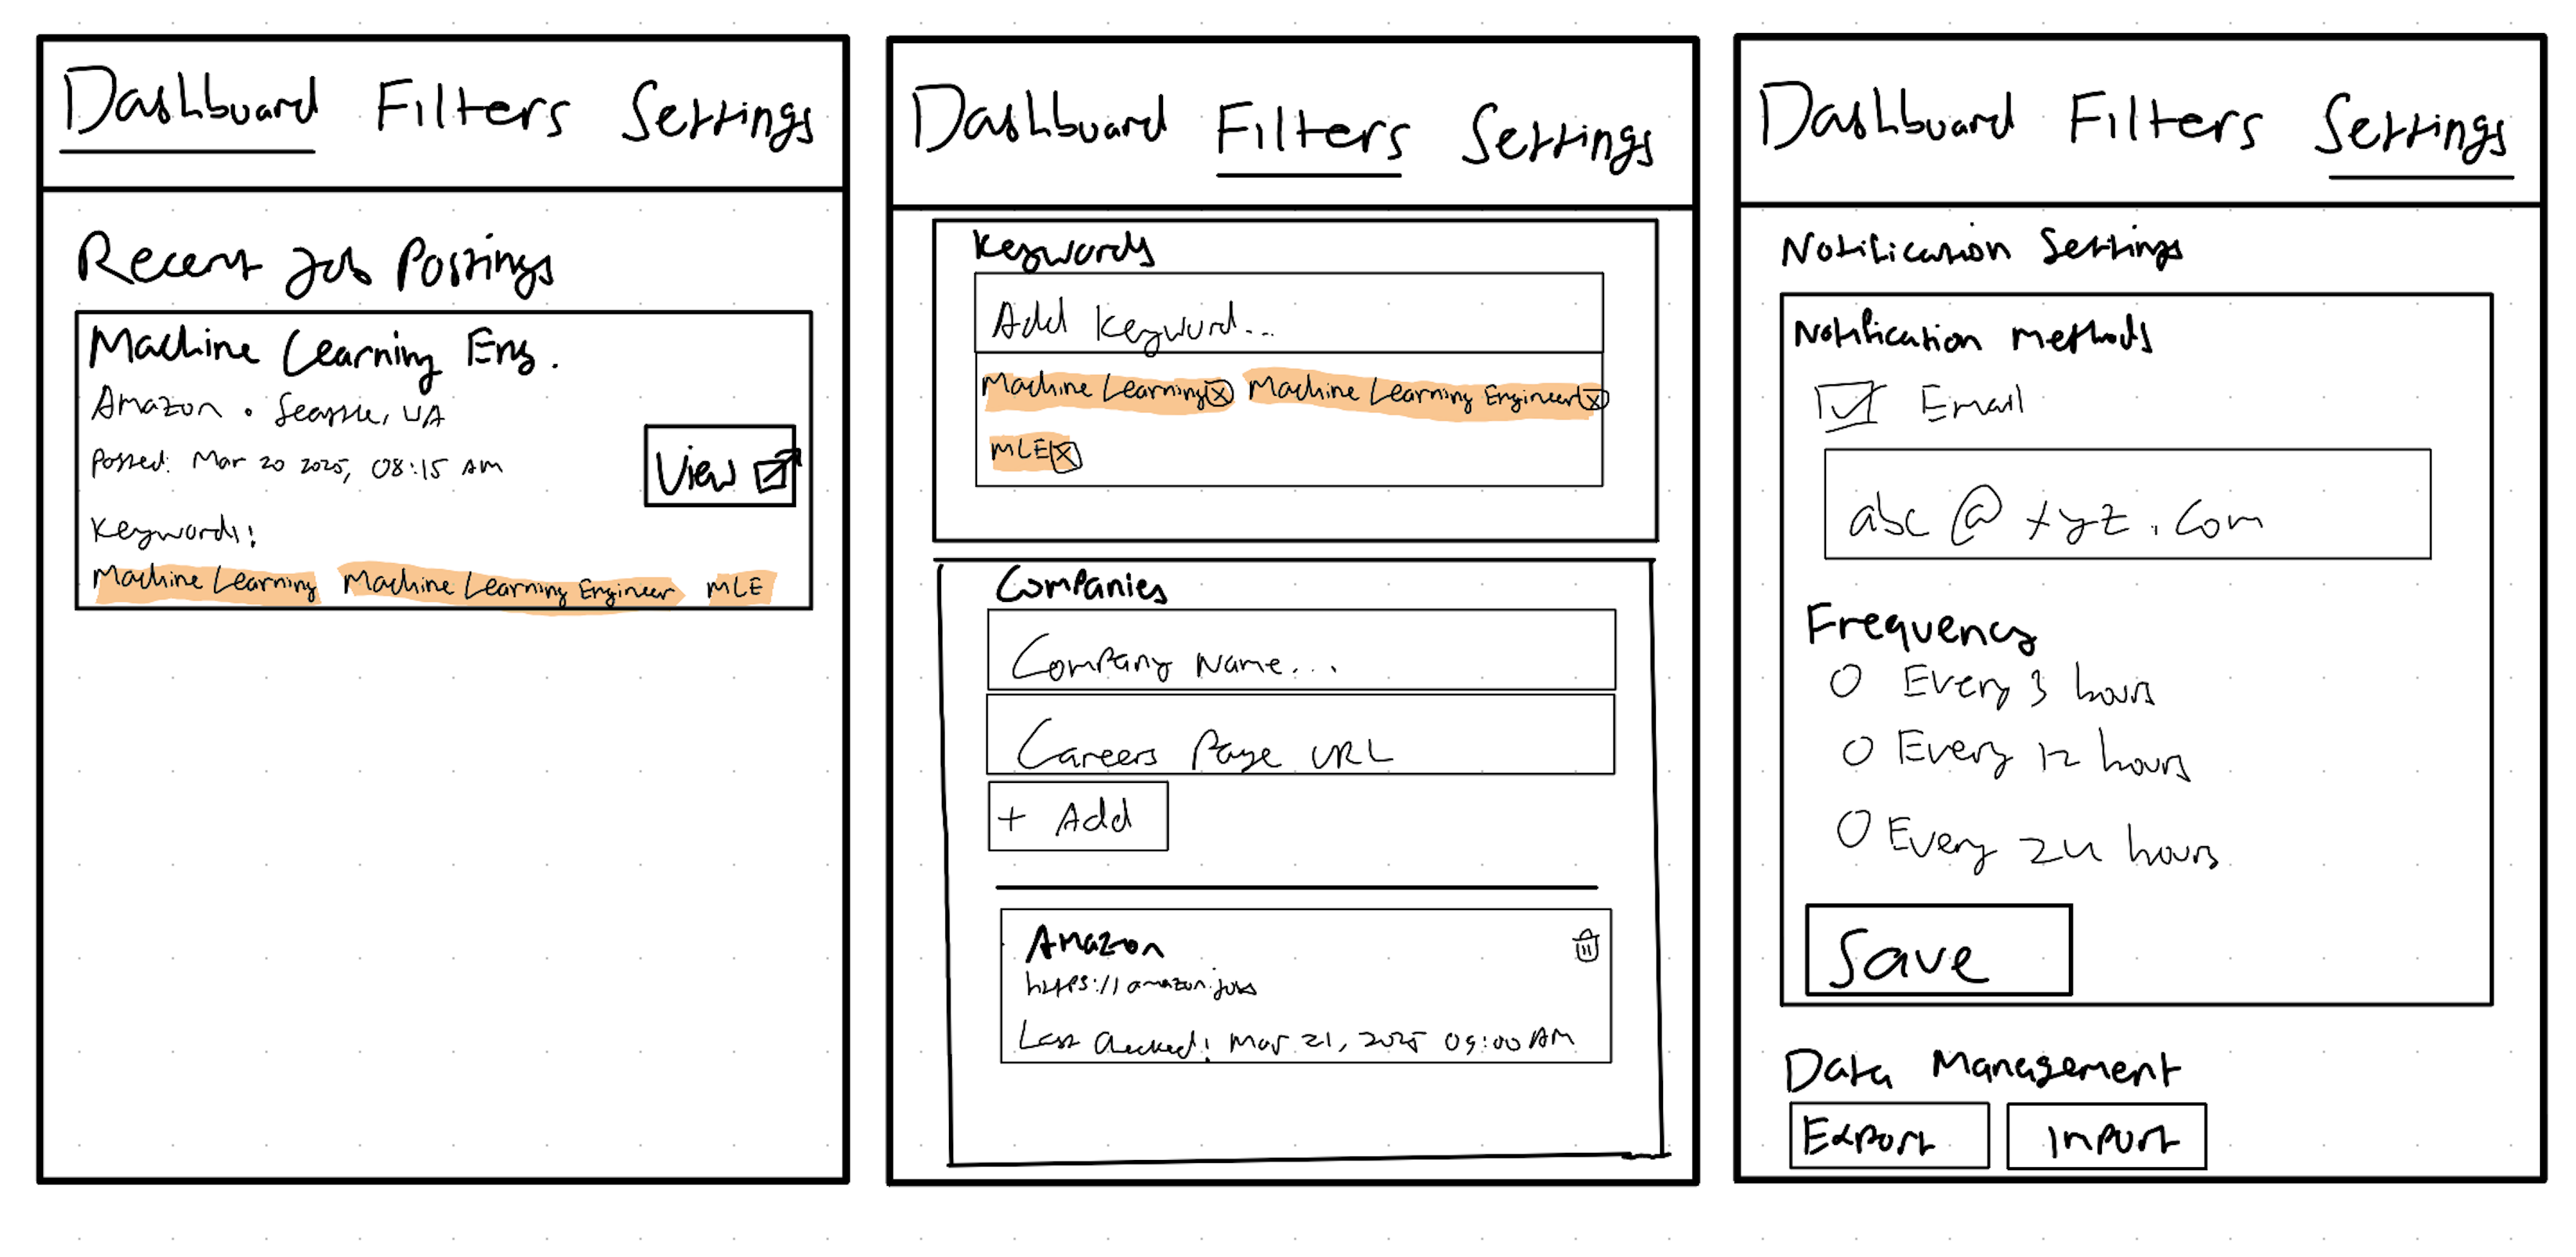 Dashboard Filters Settings
Recent Job Postings
Machine Learning Eng.
Amazon • Seattle, WA
Posted: Mar 20 2025, 08:15 AM
View
Keywords:
Machine Learning Machine Learning Engineer MLE
Dashboard Filters Settings
Keywords
Add Keyword...
Machine Learning x Machine Learning Engineer x
MLE x
Companies
Company Name...
Careers Page URL
+ Add
Amazon
https://amazon.jobs
Last Checked: Mar 21, 2025 09:00 AM
Dashboard Filters Settings
Notification Settings
Notification Methods
Email
abc@xyz.com
Frequency
Every 3 hours
Every 12 hours
Every 24 hours
Save
Data Management
Export Import